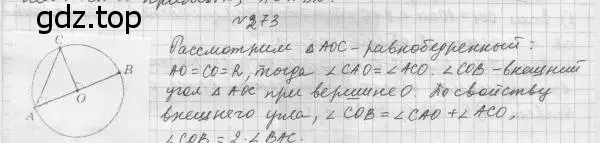 gdz.top
№273
C
B
O
A
Рассмотрим △AOC - равнобедренный:
AO=CO=R, тогда ∠CAO=∠ACO. ∠COB - внешний
угол △AOC при вершине O. По свойству
внешнего угла, ∠COB = ∠CAO + ∠ACO,
∠COB = 2·∠BAC.